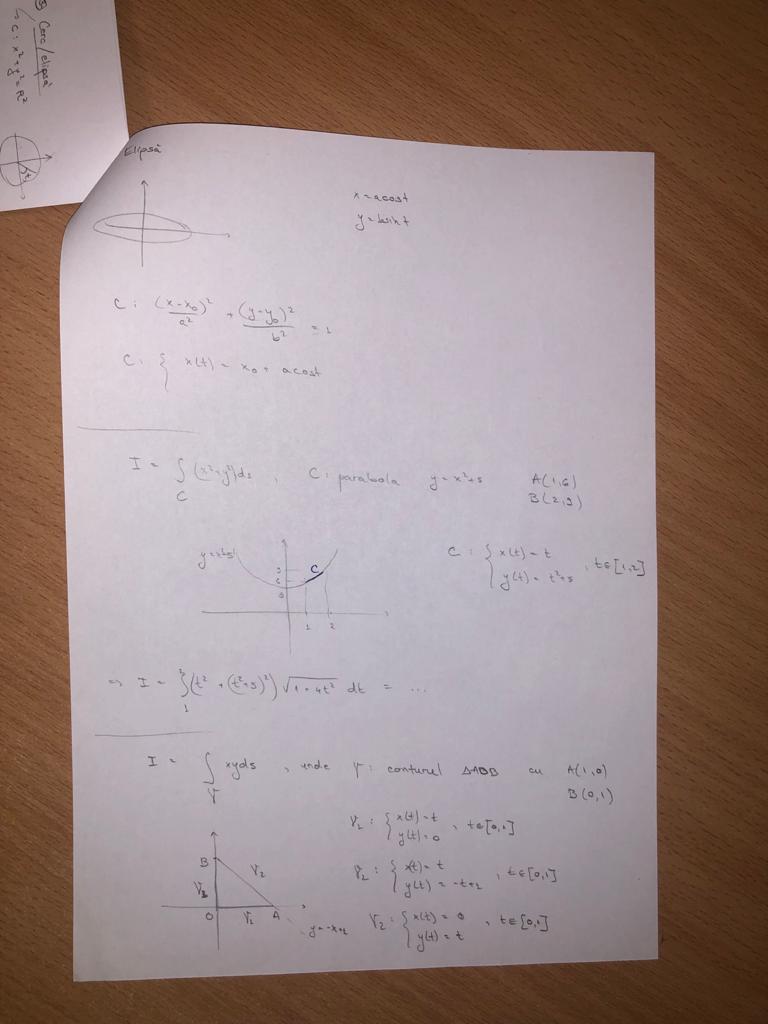 ③ Cerc/elipsă
↳ C: x² + y² = R²
t
Elipsă
x = a cos t
y = b sin t
C: (x-x₀)²/a² + (y-y₀)²/b² = 1
C: { x(t) = x₀ + a cos t
I = ∫_C (x²+y²) ds, C: parabola y = x²+5 A(1,6)
B(2,9)
y = x²+5
C
1 2
C: { x(t) = t
y(t) = t²+5 , t ∈ [1,2]
⇒ I = ∫₁² (t² + (t²+5)²) √(1+4t²) dt = ...
I = ∫_γ xy ds, unde γ: conturul ΔAOB cu A(1,0)
B(0,1)
γ₁: { x(t) = t
y(t) = 0 , t ∈ [0,1]
γ₂: { x(t) = t
y(t) = -t+1 , t ∈ [0,1]
γ₂: { x(t) = 0
y(t) = t , t ∈ [0,1]
B γ₂
γ₃
O γ₁ A
y = -x+1